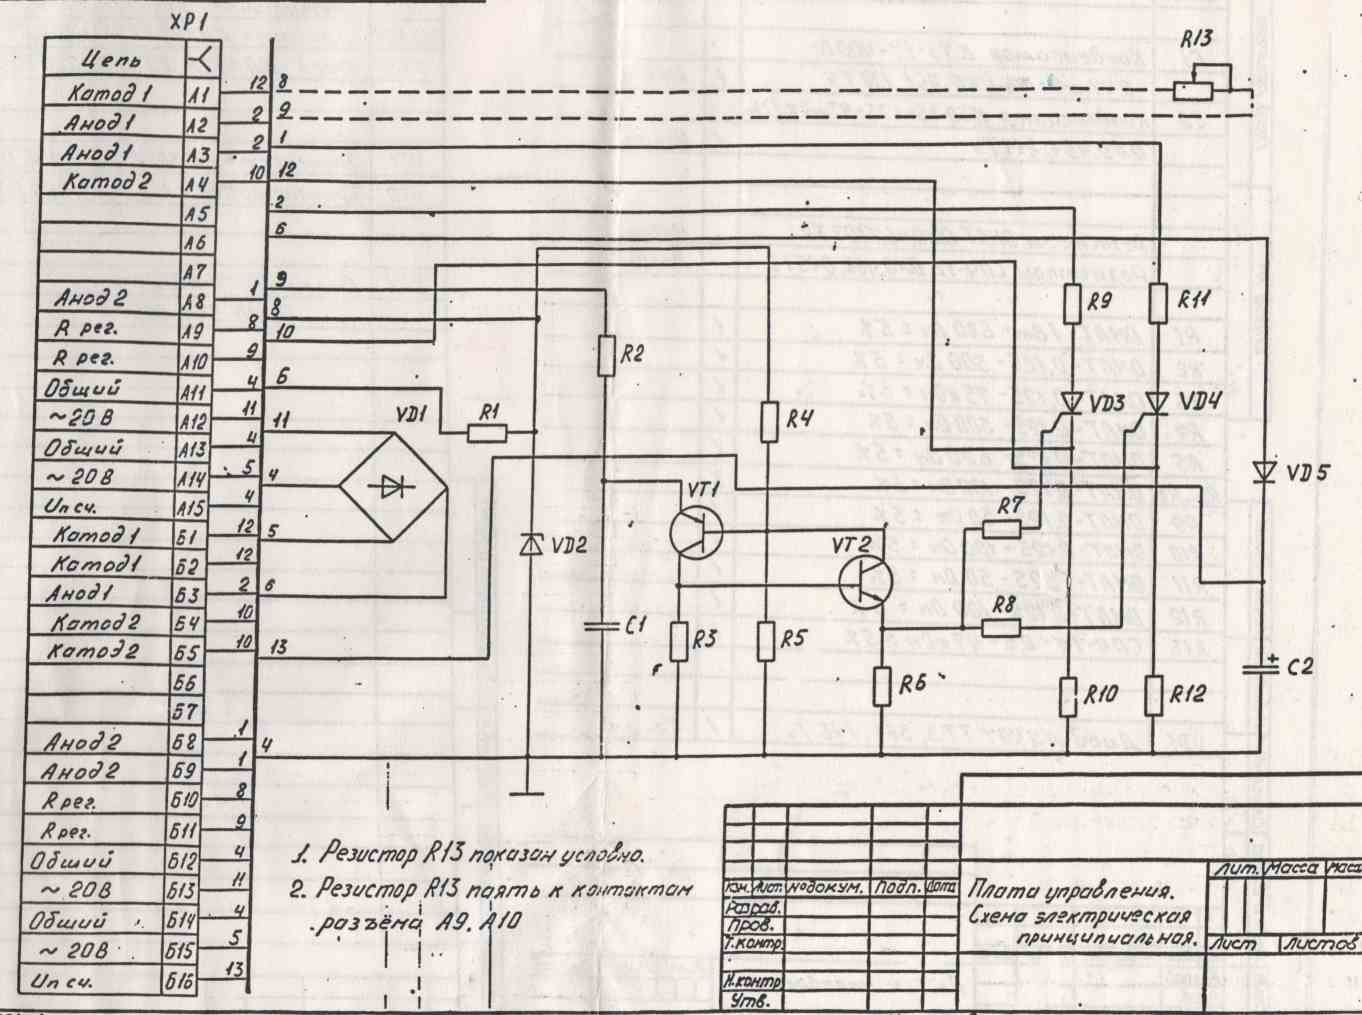 XP1
Цепь
Катод1 А1 12
Анод1 А2 2
Анод1 А3 2
Катод2 А4 10
А5
А6
А7
Анод2 А8 1
R рег. А9 8
R рег. А10 9
Общий А11 4
~20В А12 11
Общий А13 4
~20В А14 5
Uпсч. А15 4
Катод1 Б1 12
Катод1 Б2 12
Анод1 Б3 2
Катод2 Б4 10
Катод2 Б5 10
Б6
Б7
Анод2 Б8 1
Анод2 Б9 1
R рег. Б10 8
R рег. Б11 9
Общий Б12 4
~20В Б13 11
Общий Б14 4
~20В Б15 5
Uпсч. Б16 13
8
9
1
12
2
6
9
8
10
6
11
4
5
6
13
4
R13
R9
R11
R2
VD1
R1
R4
VD3
VD4
VD5
VT1
R7
VD2
VT2
C1
R3
R5
R8
R6
R10
R12
+
C2
1. Резистор R13 показан условно.
2. Резистор R13 паять к контактам
разъёма А9, А10
Изм. Лист №докум. Подп. Дата
Разраб.
Пров.
Т.контр.
Н.контр.
Утв.
Плата управления.
Схема электрическая
принципиальная.
Лит. Масса
Лист Листов